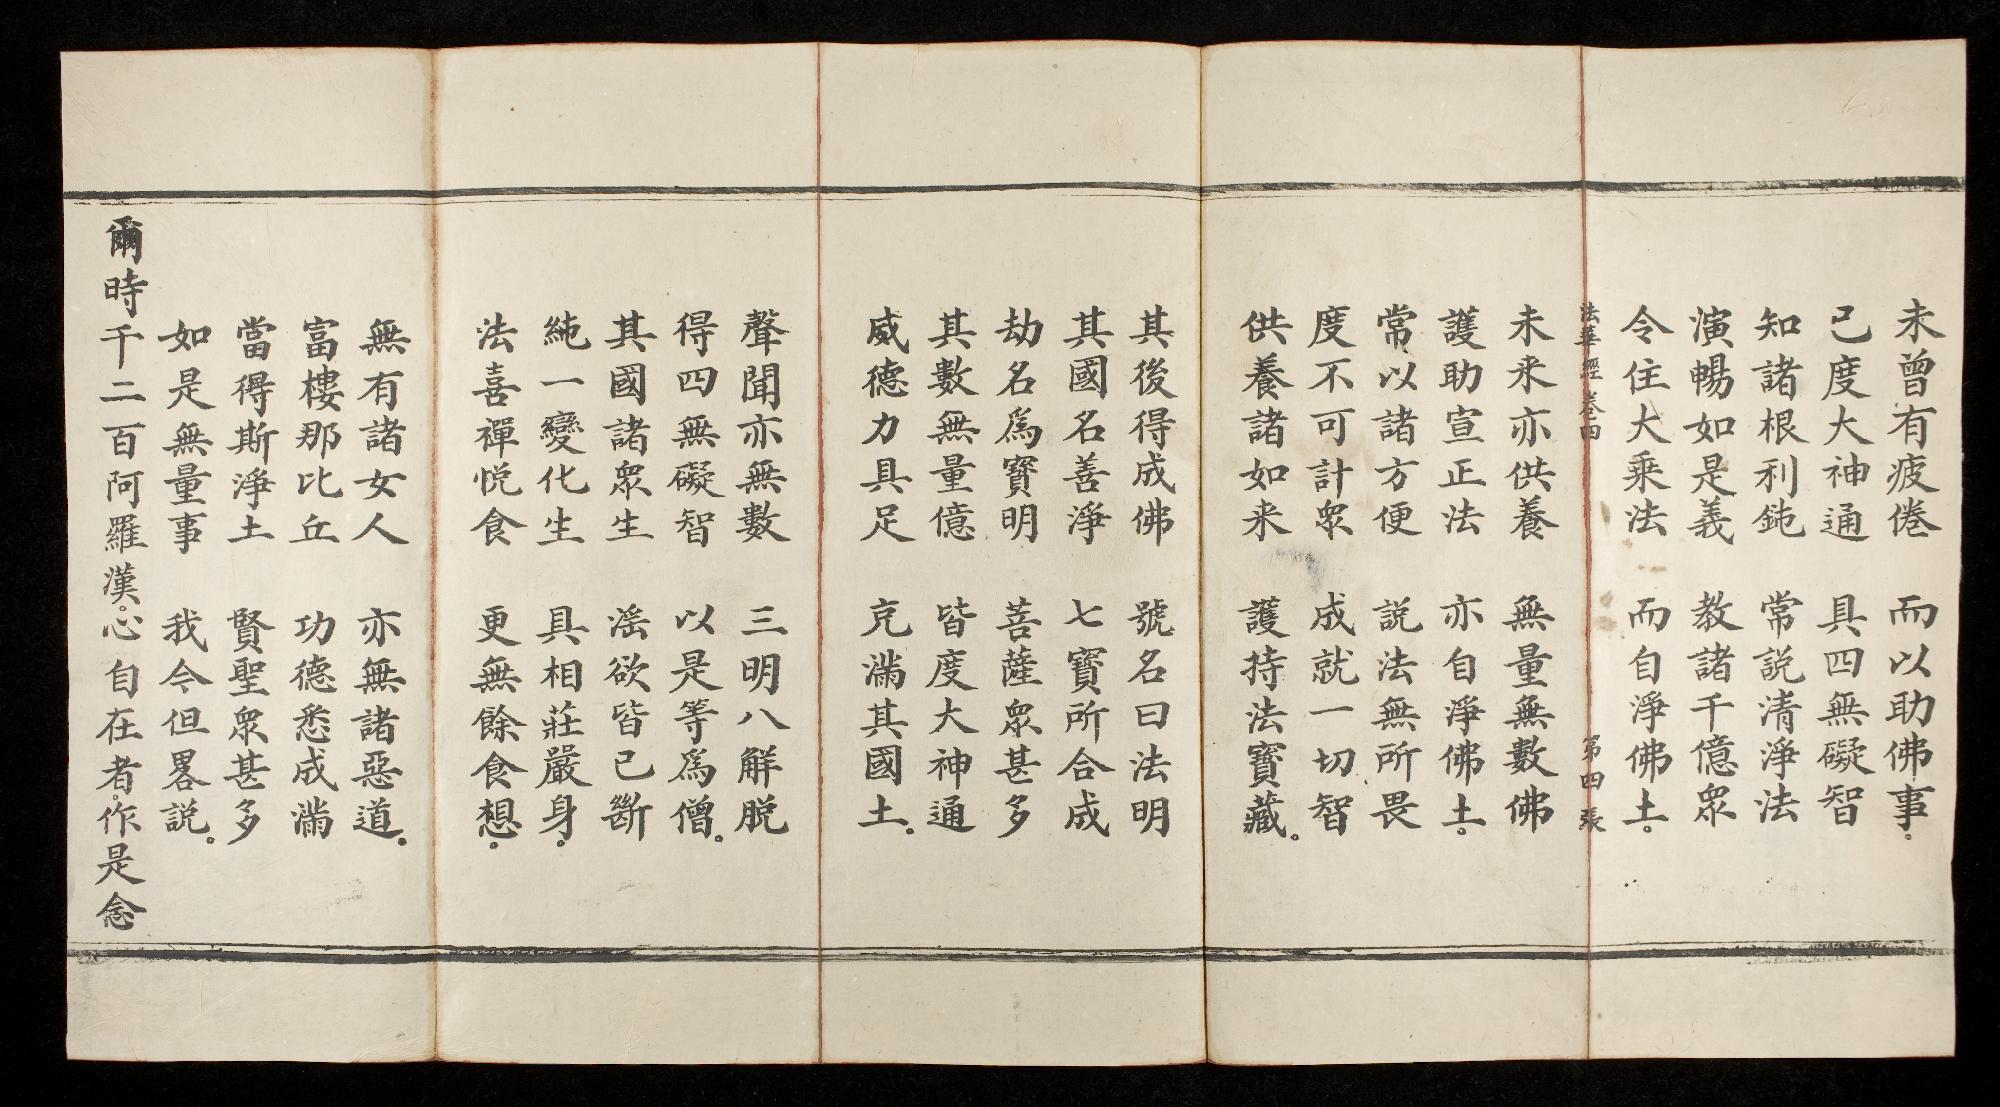 未曾有疲倦　而以助佛事。
已度大神通　具四無礙智
知諸根利鈍　常説清淨法
演暢如是義　教諸千億衆
令住大乘法　而自淨佛土。
法華經卷四　第四張
未来亦供養　無量無數佛
護助宣正法　亦自淨佛土。
常以諸方便　説法無所畏
度不可計衆　成就一切智
供養諸如来　護持法寶藏。
其後得成佛　號名曰法明
其國名善淨　七寶所合成
劫名爲寶明　菩薩衆甚多
其數無量億　皆度大神通
威德力具足　充滿其國土。
聲聞亦無數　三明八解脱
得四無礙智　以是等爲僧。
其國諸衆生　淫欲皆已斷
純一變化生　具相莊嚴身。
法喜禪悦食　更無餘食想。
無有諸女人　亦無諸惡道。
富樓那比丘　功德悉成滿
當得斯淨土　賢聖衆甚多
如是無量事　我今但畧説。
爾時千二百阿羅漢。心自在者。作是念